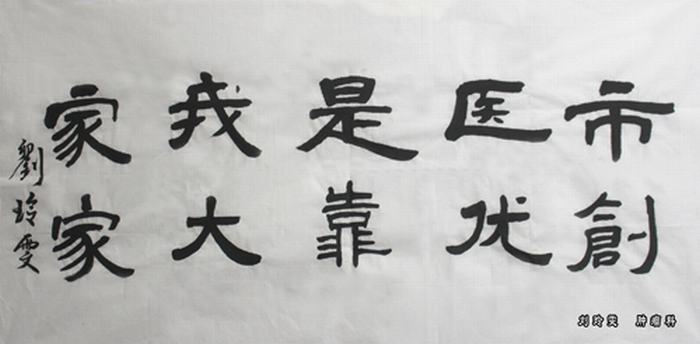 市医是我家
創优靠大家
劉玲雯
刘玲雯 肿瘤科